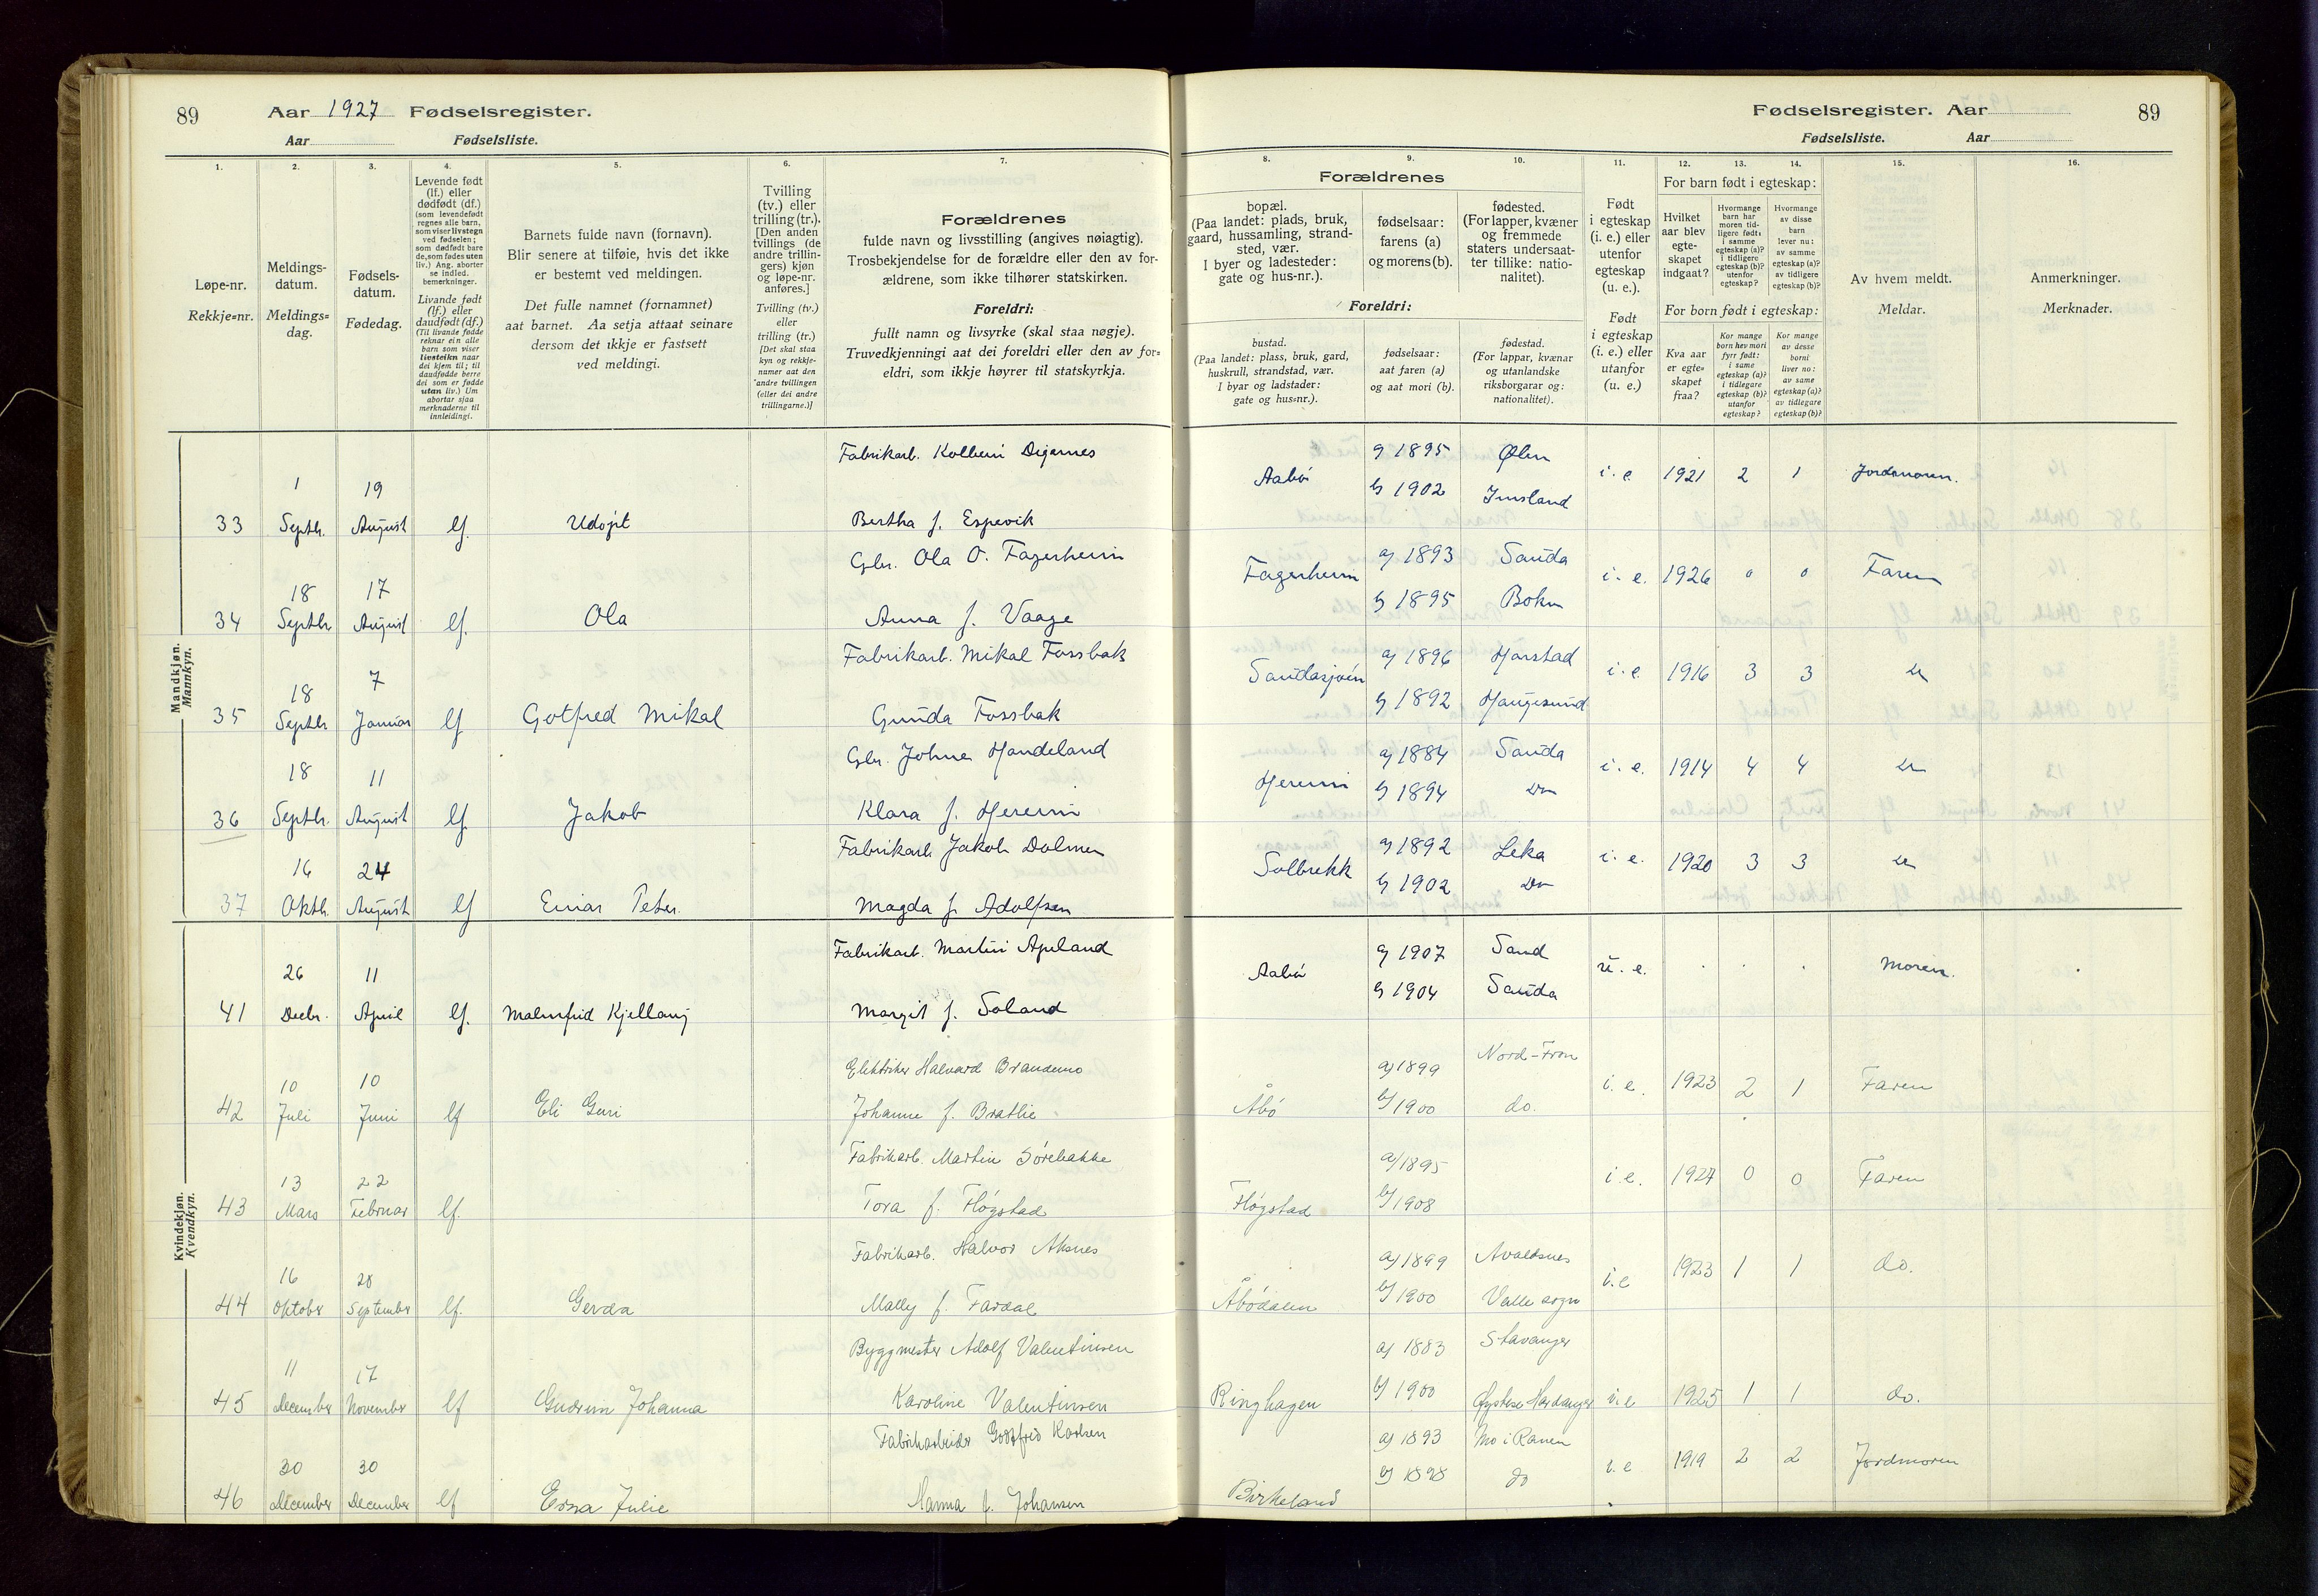 89 Aar 1927 Fødselsregister.
Aar Fødselsliste.
Fødselsregister. Aar 89
Fødselsliste. Aar
1. 2. 3. 4. 5. 6. 7. 8. 9. 10. 11. 12. 13. 14. 15. 16.
Løpe-nr.
Rekkje=nr.
Meldings-
datum.
Meldings=
dag.
Fødsels-
datum.
Fødedag.
Levende født
(lf.) eller
dødfødt (df.)
(som levendefødt
regnes alle barn,
som viser livstegn
ved fødselen;
som dødfødt bare
de, som fødes uten
liv.) Ang. aborter
se indled.
bemerkninger.
Livande født
(lf.) eller
daudfødt (df.)
(Til livande fødde
reknar ein alle
barn som viser
livsteikn naar
dei kjem til; til
daudfødde berre
dei som er fødde
utan liv.) Um
abortar sjaa
merknaderne til
innleidingi.
Barnets fulde navn (fornavn).
Blir senere at tilføie, hvis det ikke
er bestemt ved meldingen.
Det fulle namnet (fornamnet)
aat barnet. Aa setja attaat seinare
dersom det ikkje er fastsett
ved meldingi.
Tvilling
(tv.) eller
trilling (tr.).
[Den anden
tvillings (de
andre trillin-
gers) kjøn
og løpe-nr.
anføres.]
Tvilling (tv.)
eller
trilling (tr.)
[Det skal staa
kyn og rekkje-
numer aat den
andre tvillingen
(eller dei andre
trillingarne.)]
Forældrenes
fulde navn og livsstilling (angives nøiagtig).
Trosbekjendelse for de forældre eller den av for-
ældrene, som ikke tilhører statskirken.
Foreldri:
fullt namn og livsyrke (skal staa nøgje).
Truvedkjenningi aat dei foreldri eller den av for=
eldri, som ikkje høyrer til statskyrkja.
Forældrenes
bopæl.
(Paa landet: plads, bruk,
gaard, hussamling, strand-
sted, vær.
I byer og ladesteder:
gate og hus-nr.).
fødselsaar:
farens (a)
og morens (b).
fødested.
(For lapper, kvæner
og fremmede
staters undersaat-
ter tillike: natio-
nalitet).
Foreldri:
bustad.
(Paa landet: plass, bruk, gard,
huskrull, strandstad, vær.
I byar og ladstader:
gate og hus=nr.).
fødselsaar:
aat faren (a)
og aat mori (b).
fødestad.
(For lappar, kvænar
og utanlandske
riksborgarar og:
nationalitet).
Født
i egteskap
(i. e.) eller
utenfor
egteskap
(u. e.).
Født
i egteskap
(i. e.) eller
utanfor
(u. e.)
For barn født i egteskap:
Hvilket
aar blev
egte-
skapet
indgaat?
Hvormange
barn har
moren tid-
ligere født:
i samme
egteskap (a)?
i tidligere
egteskap (b)?
utenfor
egteskap?
Hvormange
av disse
barn
lever nu:
av samme
egteskap (a)?
av tidligere
egteskap (b)?
For born født i egteskap:
Kva aar
er egte=
skapet
fraa?
Kor mange
born hev mori
fyrr født:
i same
egteskap (a)?
i tidlegare
egteskap (b)?
utanfor
egteskap?
Kor mange
av desse
borni
liver no:
av same
egteskap (a)?
av tidlegare
egteskap (b)?
Av hvem meldt.
Meldar.
Anmerkninger.
Merknader.
Mandkjøn.
Mannkyn.
Fabrikarb. Kolbein Digernes
33 1 Septbr. 19 August lf. Udøpt Bertha f. Espevik Aabø a) 1895 b) 1902 Ølen Imsland i. e. 1921 2 1 Jordmoren.
Gbr. Ola O. Fagerheim
34 18 Septbr 17 August lf. Ola Anna f. Vaage Fagerheim a) 1893 b) 1895 Sauda Bokn i. e. 1926 0 0 Faren
Fabrikarb. Mikal Fossbak
35 18 Septbr 7 Januar lf Gotfred Mikal Gunda Fossbak Saudasjøen a) 1896 b) 1892 Harstad Haugesund i. e 1916 3 3 do
Gbr. Johne Handeland
36 18 Septbr. 11 August lf. Jakob Klara f. Hereim Hereim a) 1884 b) 1894 Sauda do i. e. 1914 4 4 do
Fabrikarb. Jakob Dolmen
37 16 Oktb. 24 August lf Einar Peter. Magda f. Adolfsen Solbrekk a) 1892 b) 1902 Leka do i. e. 1920 3 3 do
Kvindekjøn.
Kvendkyn.
Fabrikarb. Martin Apeland
41 26 Decbr. 11 April lf. Malmfrid Kjellaug Margit f. Soland Aabø a) 1907 b) 1904 Sand Sauda u. e. Moren.
Elektriker Halvard Brandemo
42 10 Juli 10 Juni lf Eli Guri Johanne f. Bratlie Åbø a) 1899 b) 1900 Nord-Fron do. i. e. 1923 2 1 Faren
Fabrikarb. Martin Sørebakke
43 13 Mars 22 Februar lf. Tora f. Fløgstad Fløgstad a) 1895 b) 1908 i. e. 1927 0 0 Faren
Fabrikarb. Halvor Aksnes
44 16 Oktober 28 September lf. Gerda Mally f. Fardal Åbødalen a) 1899 b) 1900 Avaldsnes Valle sogn i. e 1923 1 1 do.
Byggmester Adolf Valentinsen
45 11 December 17 November lf Gudrun Johanna Karoline Valentinsen Ringhagen a) 1883 b) 1900 Stavanger Øystese Hardanger i. e 1925 1 1 do.
Fabrikarbeider Gottfred Karlsen
46 30 December 30 December lf Erna Julie Hanna f. Johansen Birkeland a) 1893 b) 1898 Mo i Ranen do i. e 1919 2 2 Jordmoren